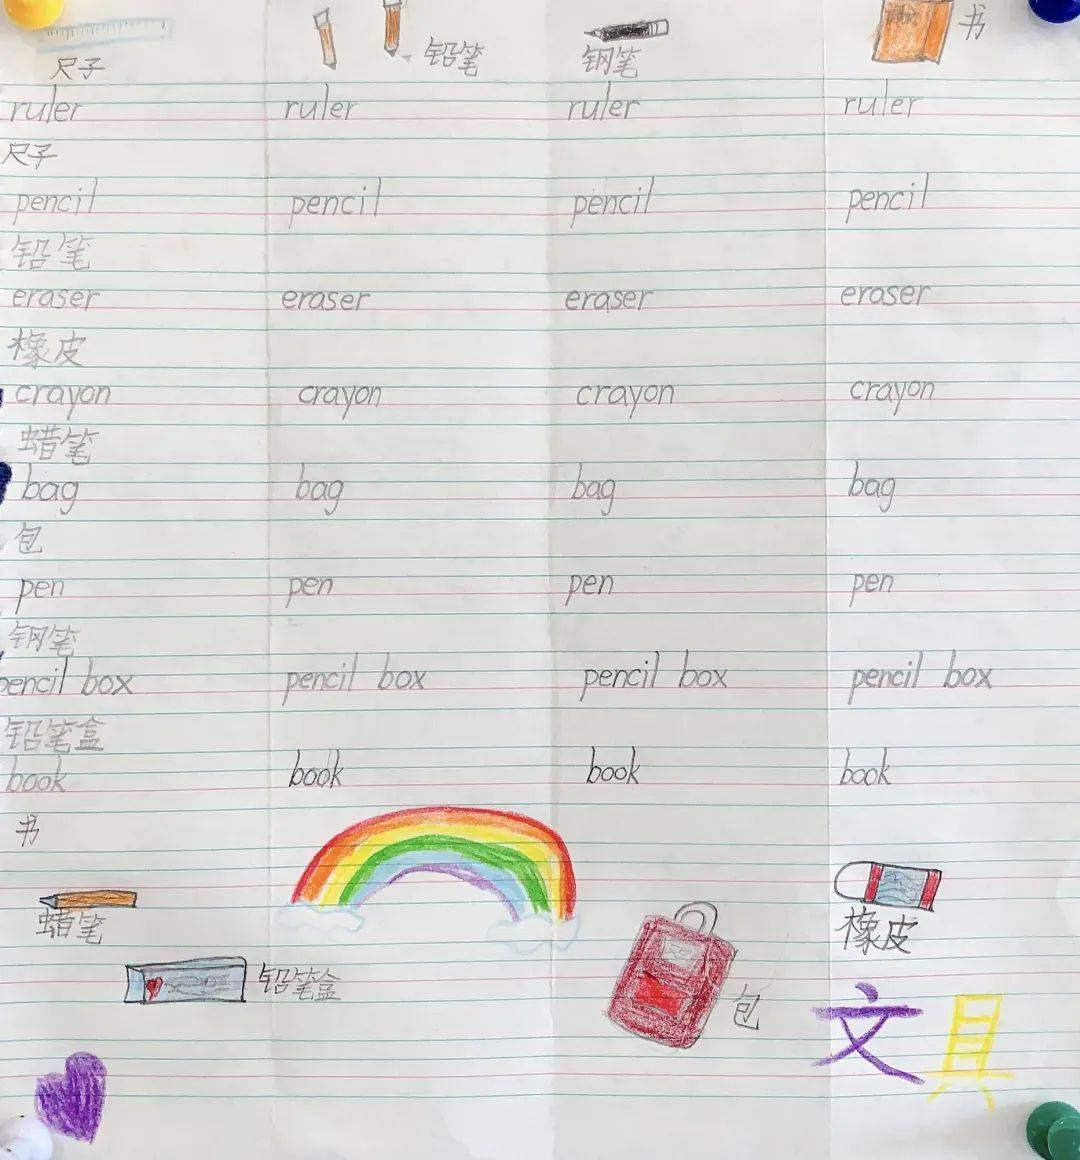 尺子 铅笔 钢笔 书
ruler ruler ruler ruler
尺子
pencil pencil pencil pencil
铅笔
eraser eraser eraser eraser
橡皮
crayon crayon crayon crayon
蜡笔
bag bag bag bag
包
pen pen pen pen
钢笔
pencil box pencil box pencil box pencil box
铅笔盒
book book book book
书
蜡笔 橡皮
铅笔盒 包
文具